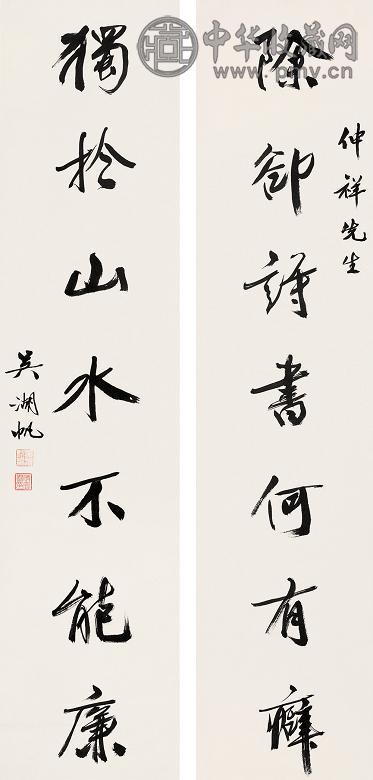 除卻詩書何有癖
仲祥先生
獨於山水不能廉
吳湖帆
中华收藏网
www.pmv.cn